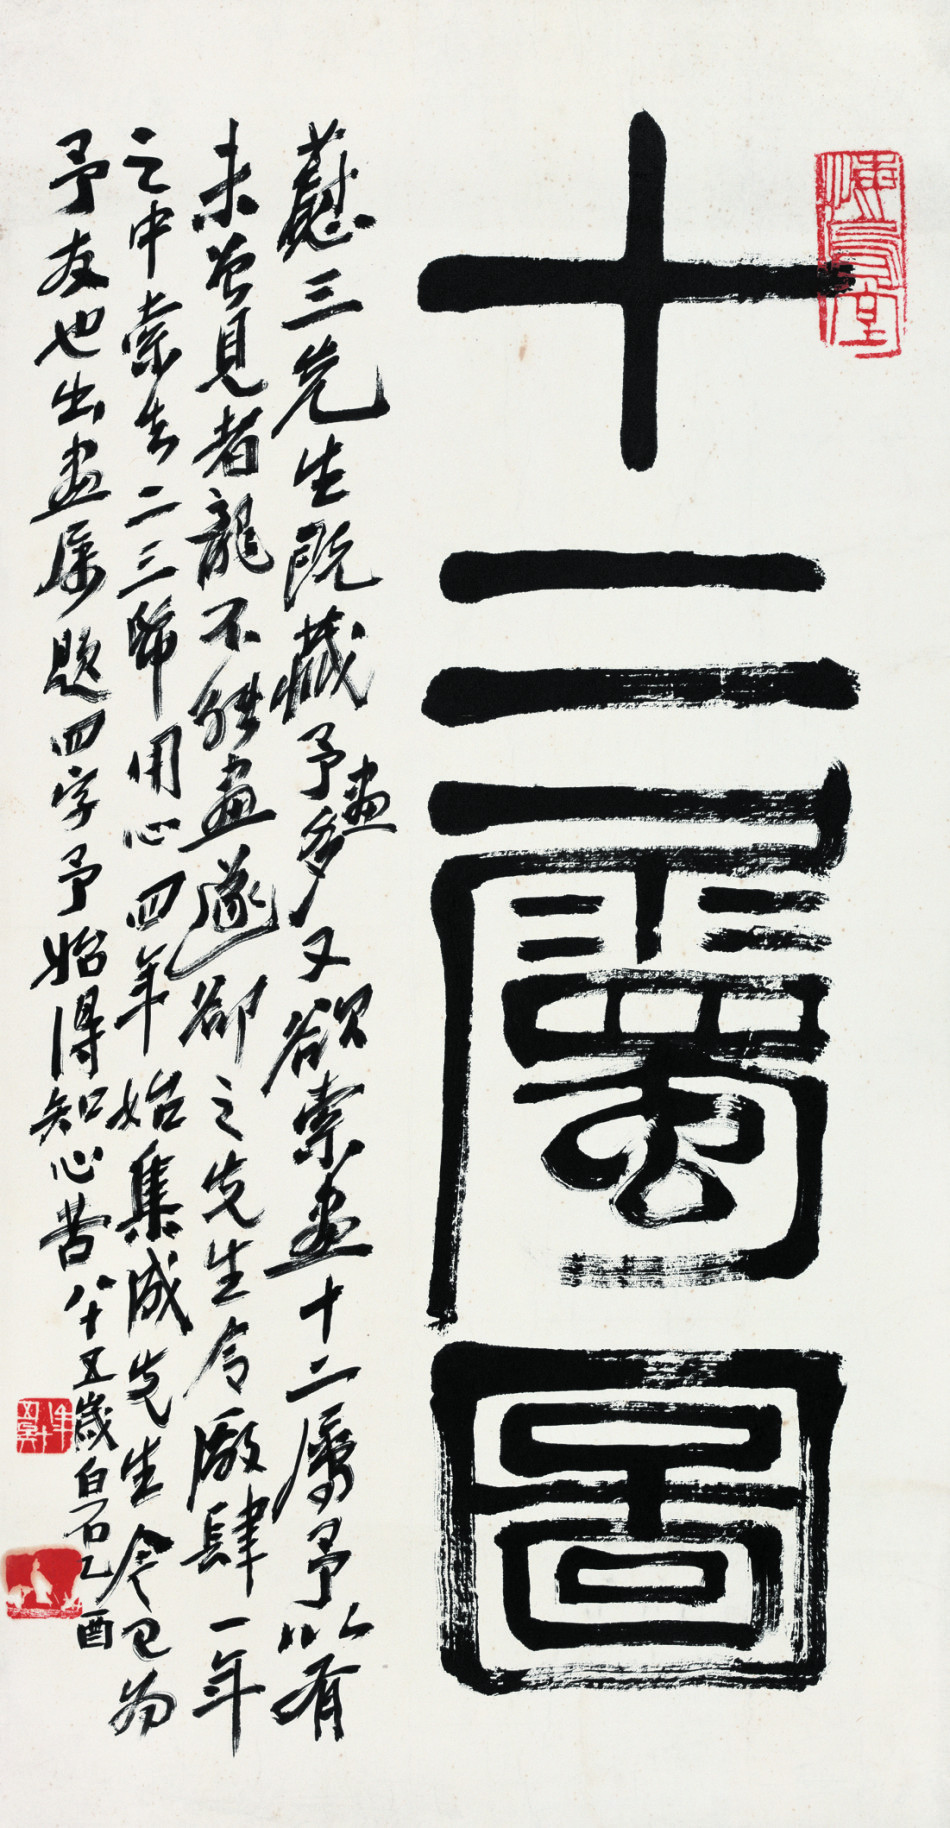 十二屬圖
蕙三先生既藏予畫多又欲索畫十二屬予以有
未曾見者龍不能畫遂卻之先生令廠肆一年
之中索去二三幀用心四年始集成先生令已為
予友也出畫屬題四字予始得知心苦八十五歲白石乙酉